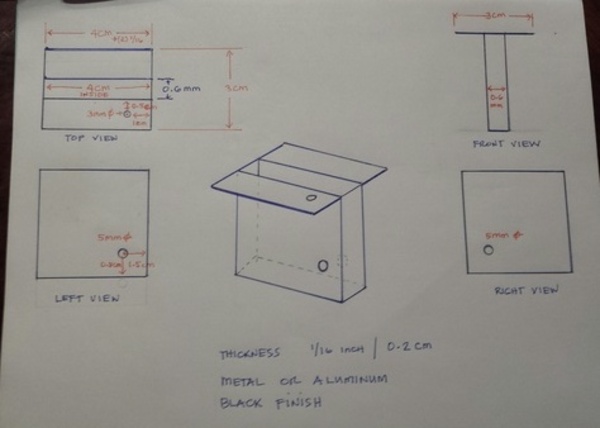 4cm
+(2) 1/16
4cm
INSIDE
0.6mm
3cm
3mm ϕ
1cm
TOP VIEW
3cm
0.6
mm
FRONT VIEW
5mm ϕ
1.5cm
LEFT VIEW
5mm ϕ
RIGHT VIEW
THICKNESS 1/16 INCH | 0.2 cm
METAL OR ALUMINUM
BLACK FINISH